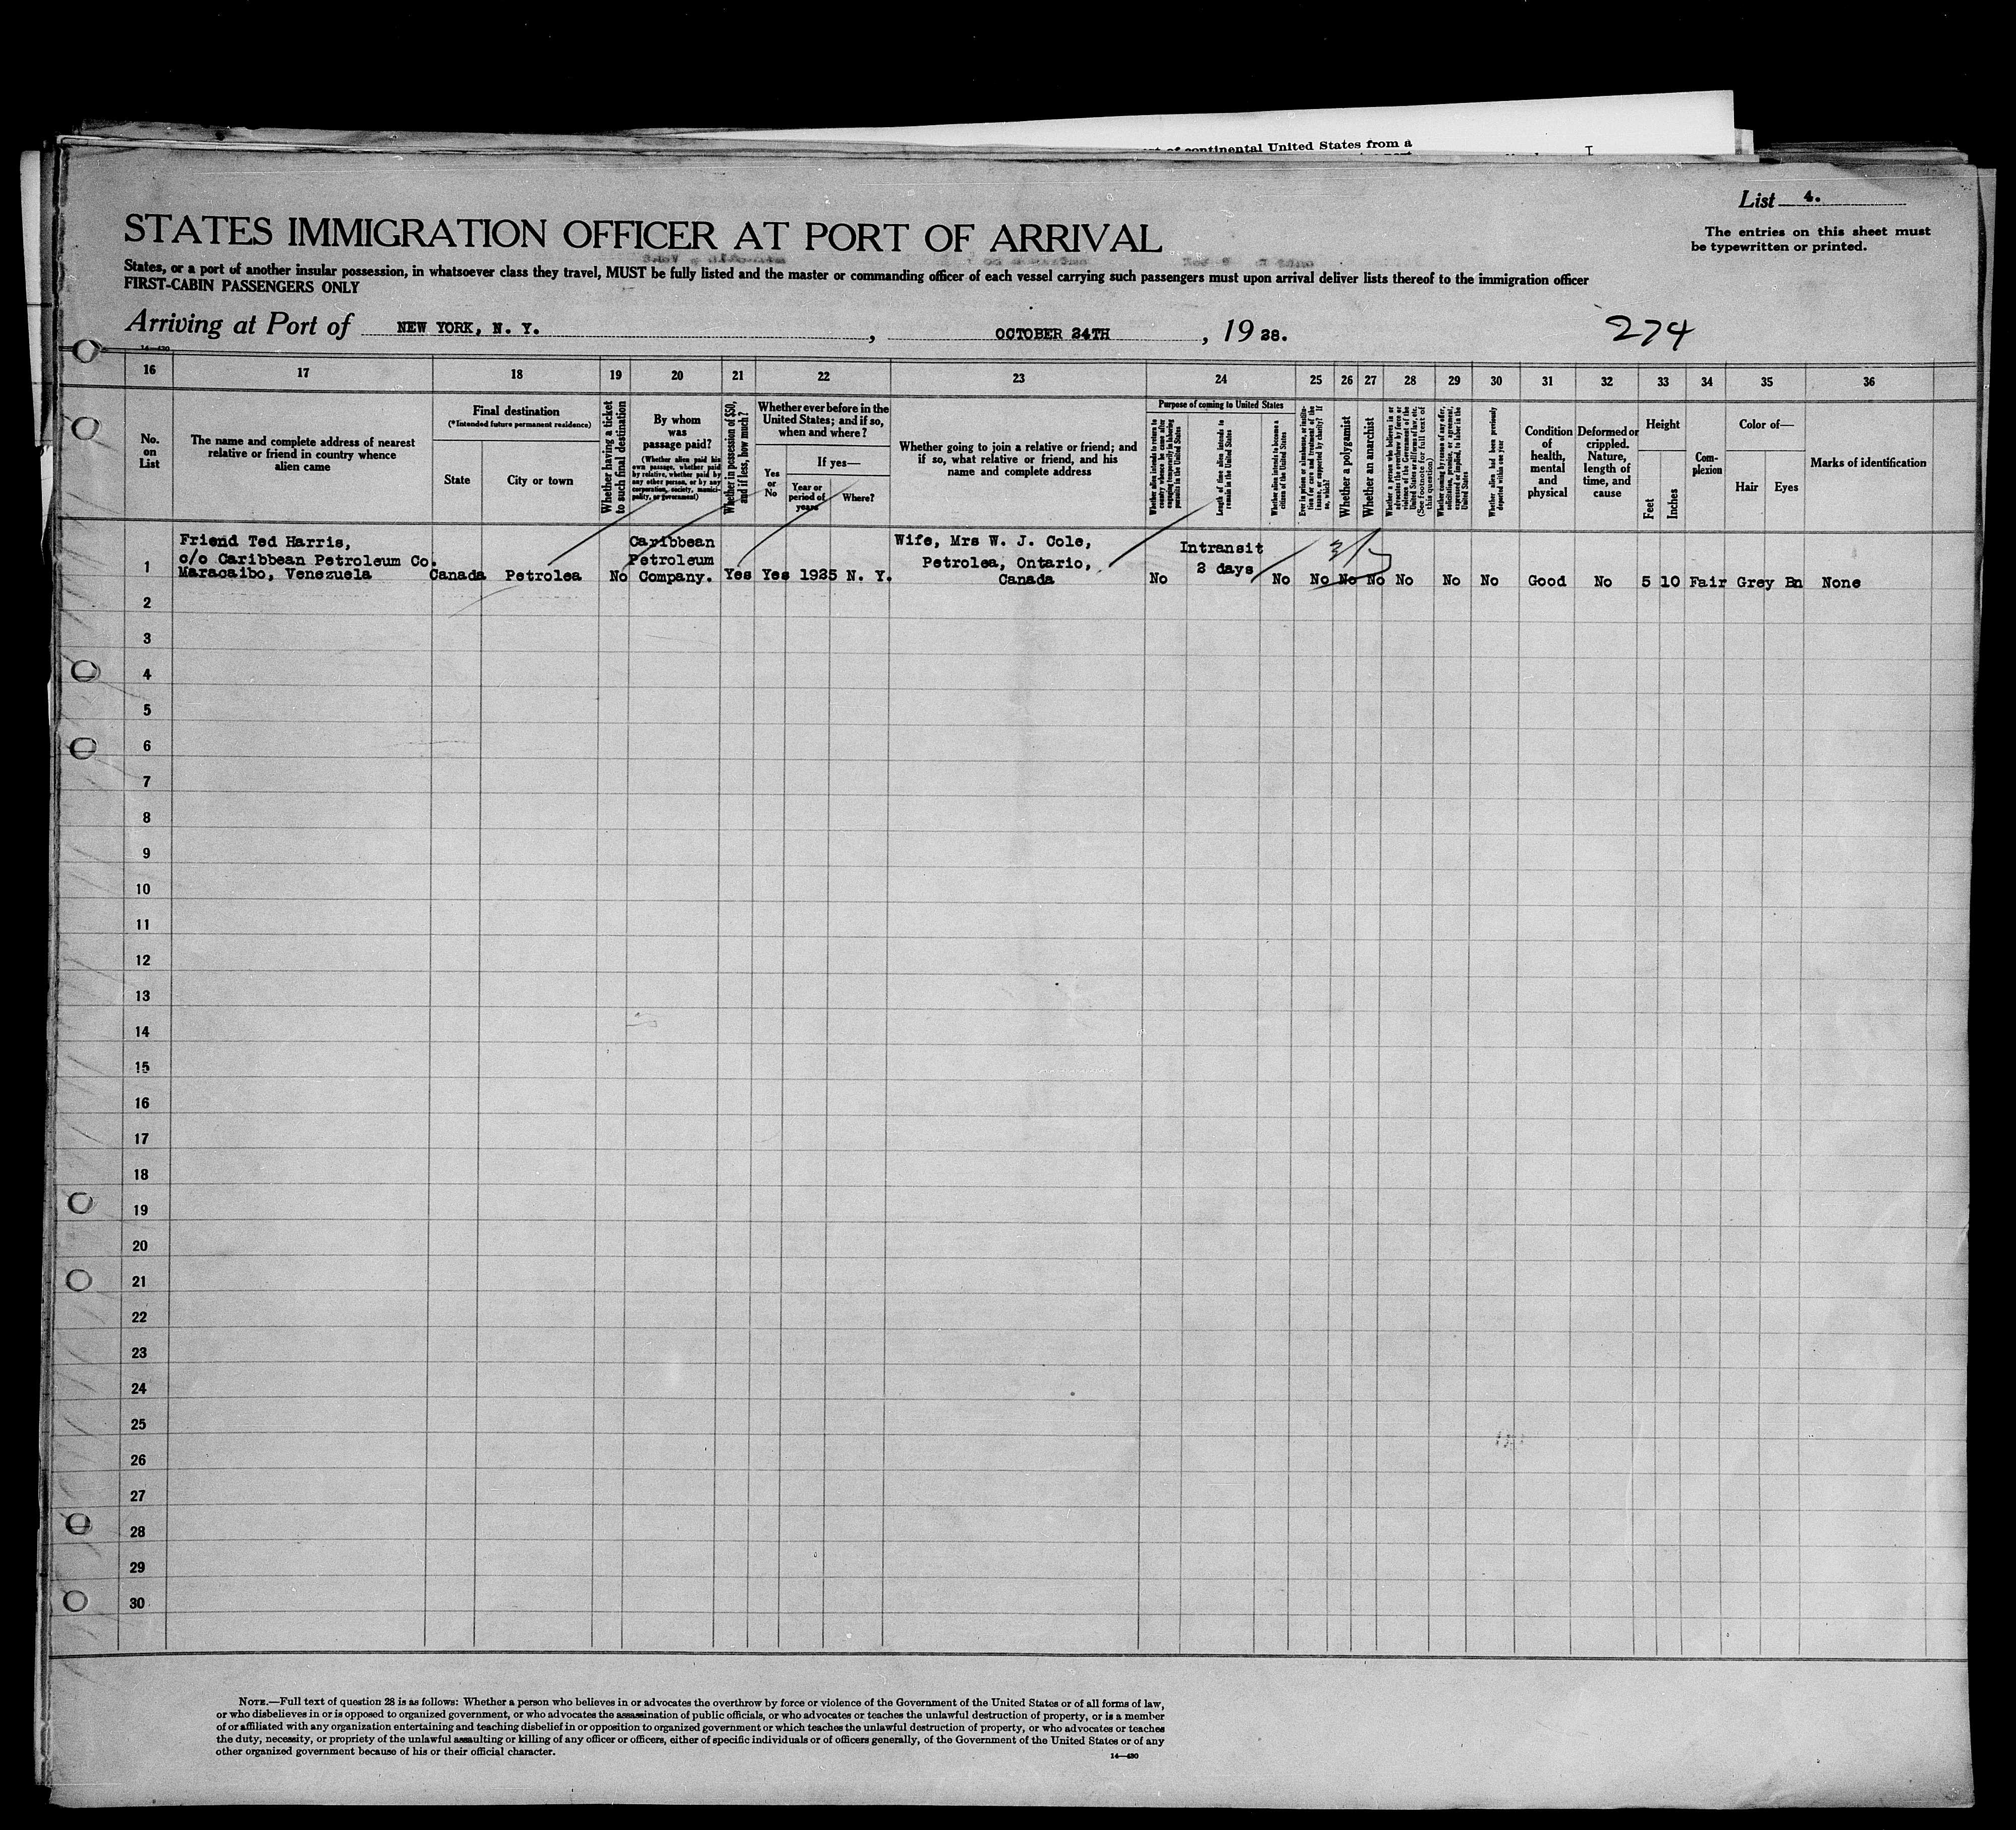 of continental United States from a
List 4.
STATES IMMIGRATION OFFICER AT PORT OF ARRIVAL
The entries on this sheet must
be typewritten or printed.
States, or a port of another insular possession, in whatsoever class they travel, MUST be fully listed and the master or commanding officer of each vessel carrying such passengers must upon arrival deliver lists thereof to the immigration officer
FIRST-CABIN PASSENGERS ONLY
Arriving at Port of NEW YORK, N. Y. , OCTOBER 24TH , 19 28.
274
14—430
16 17 18 19 20 21 22 23 24 25 26 27 28 29 30 31 32 33 34 35 36
No.
on
List
The name and complete address of nearest
relative or friend in country whence
alien came
Final destination
(*Intended future permanent residence)
State
City or town
Whether having a ticket
to such final destination
By whom
was
passage paid?
(Whether alien paid his
own passage, whether paid
by relative, whether paid by
any other person, or by any
corporation, society, munici-
pality, or government)
Whether in possession of $50,
and if less, how much?
Whether ever before in the
United States; and if so,
when and where?
Yes
or
No
If yes—
Year or
period of
years
Where?
Whether going to join a relative or friend; and
if so, what relative or friend, and his
name and complete address
Purpose of coming to United States
Whether alien intends to return to
country whence he came after
engaging temporarily in laboring
pursuits in the United States
Length of time alien intends to
remain in the United States
Whether alien intends to become a
citizen of the United States
Ever in prison or almshouse, or institu-
tion for care and treatment of the
insane, or supported by charity? If
so, which?
Whether a polygamist
Whether an anarchist
Whether a person who believes in or
advocates the overthrow by force or
violence of the Government of the
United States or all forms of law, etc.
(See footnote for full text of
this question)
Whether coming by reason of any offer,
solicitation, promise, or agreement,
expressed or implied, to labor in the
United States
Whether alien had been previously
deported within one year
Condition
of
health,
mental
and
physical
Deformed or
crippled.
Nature,
length of
time, and
cause
Height
Feet
Inches
Com-
plexion
Color of—
Hair
Eyes
Marks of identification
Friend Ted Harris,
c/o Caribbean Petroleum Co.
Maracaibo, Venezuela
Caribbean
Petroleum
Company.
Wife, Mrs W. J. Cole,
Petrolea, Ontario,
Canada
Intransit
2 days
1 Canada Petrolea No Yes Yes 1925 N. Y. No No No No No No No No Good No 5 10 Fair Grey Bn None
2
3
4
5
6
7
8
9
10
11
12
13
14
15
16
17
18
19
20
21
22
23
24
25
26
27
28
29
30
NOTE.—Full text of question 28 is as follows: Whether a person who believes in or advocates the overthrow by force or violence of the Government of the United States or of all forms of law,
or who disbelieves in or is opposed to organized government, or who advocates the assassination of public officials, or who advocates or teaches the unlawful destruction of property, or is a member
of or affiliated with any organization entertaining and teaching disbelief in or opposition to organized government or which teaches the unlawful destruction of property, or who advocates or teaches
the duty, necessity, or propriety of the unlawful assaulting or killing of any officer or officers, either of specific individuals or of officers generally, of the Government of the United States or of any
other organized government because of his or their official character.
14—430